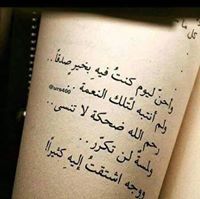 وأحنّ ليوم كنتُ فيهِ بخير صدقاً..
ولم أنتبه لتلك النعمة..
@urs400
رحم الله ضحكة لا تنسى..
ولمسة لن تكرّر..
ووجه اشتقتُ إليهِ كثيراً!